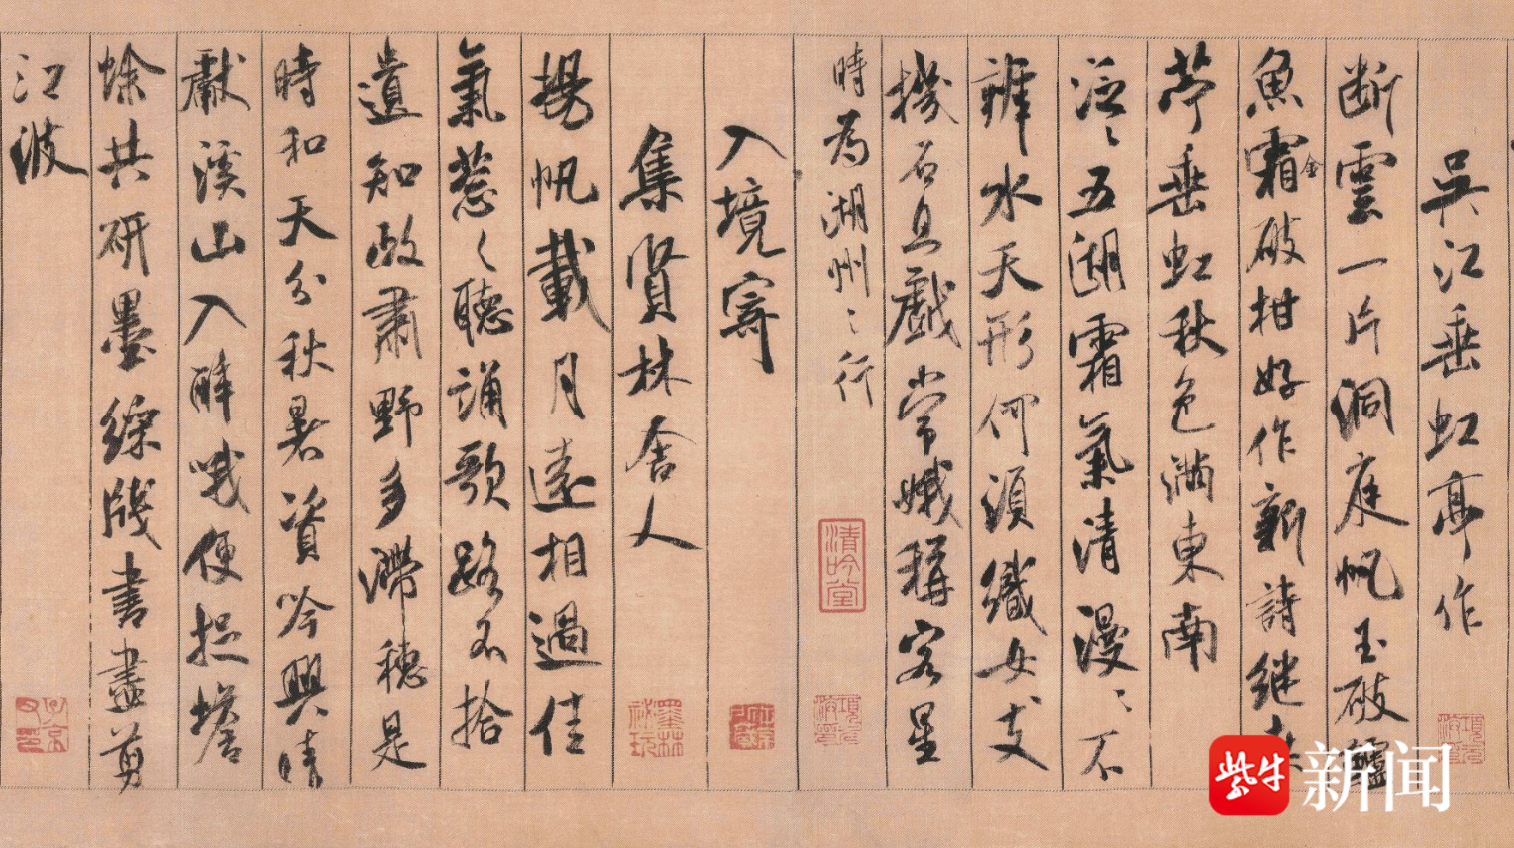 吳江垂虹亭作
断雲一片洞庭帆玉破鱸
魚霜金破柑好作新詩継桒
苧垂虹秋色満東南
泛〻五湖霜氣清漫〻不
辨水天形何須織女支
機石且戲常娥稱客星
時為湖州〻行
入境寄
集賢林舍人
揚帆載月遠相過佳
氣葱〻聽誦歌路不拾
遺知政肅野多滯穗是
時和天分秋暑資吟興晴
獻溪山入醉哦便捉蟾
蜍共研墨綵牋書盡剪
江波
清吟堂
紫牛
新闻